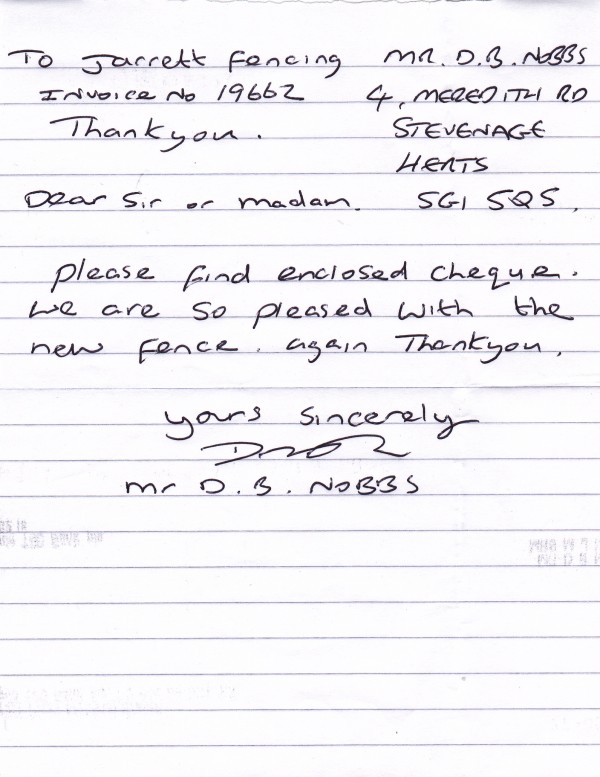 To Jarrett Fencing
Invoice No 19662
Thankyou.
MR. D.B. NOBBS
4, MEREDITH RD
STEVENAGE
HERTS
SG1 5QS,
Dear Sir or madam.
please find enclosed cheque.
we are so pleased with the
new fence. again Thankyou,
yours sincerely
mr D. B. NOBBS